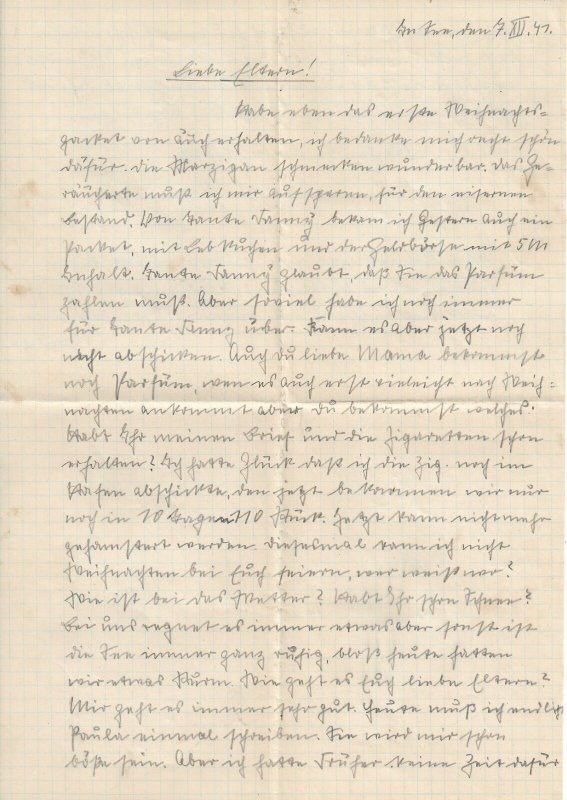 In See, den 7.XII.41.
Liebe Eltern!
Habe eben das erste Weihnachts-
packet von Euch erhalten, ich bedanke mich recht schön
dafür. Die Marzipan schmecken wunderbar. Das Ge-
räucherte muß ich mir aufsparen, für den eisernen
Bestand. Von Tante Fanny bekam ich Gestern auch ein
Packet, mit Lebkuchen und der Geldbörse mit 5 M
Inhalt. Tante Fanny glaubt, daß Sie das Parfüm
zahlen muß. Aber soviel habe ich noch immer
für Tante Fanny über. Kann es aber jetzt noch
nicht abschicken. Auch du liebe Mama bekommst
noch Parfüm, wen es auch erst vieleicht nach Weih-
nachten ankommt aber du bekommst welches.
Habt Ihr meinen Brief und die Zigaretten schon
erhalten? Ich hatte Glück daß ich die Zig. noch im
Hafen abschickte, den jetzt bekommen wir nur
noch in 10 Tagen 110 Stück. Jetzt kann nicht mehr
gehamstert werden. Diesesmal kann ich nicht
Weihnachten bei Euch feiern, wer weiß wo?
Wie ist bei das Wetter? Habt Ihr schon Schnee?
Bei uns regnet es immer etwas aber sonst ist
die See immer ganz ruhig, bloß heute hatten
wir etwas Sturm. Wie geht es Euch liebe Eltern?
Mir geht es immer sehr gut. Heute muß ich endlich
Paula einmal schreiben. Sie wird mir schon
böße sein. Aber ich hatte Früher keine Zeit dafür